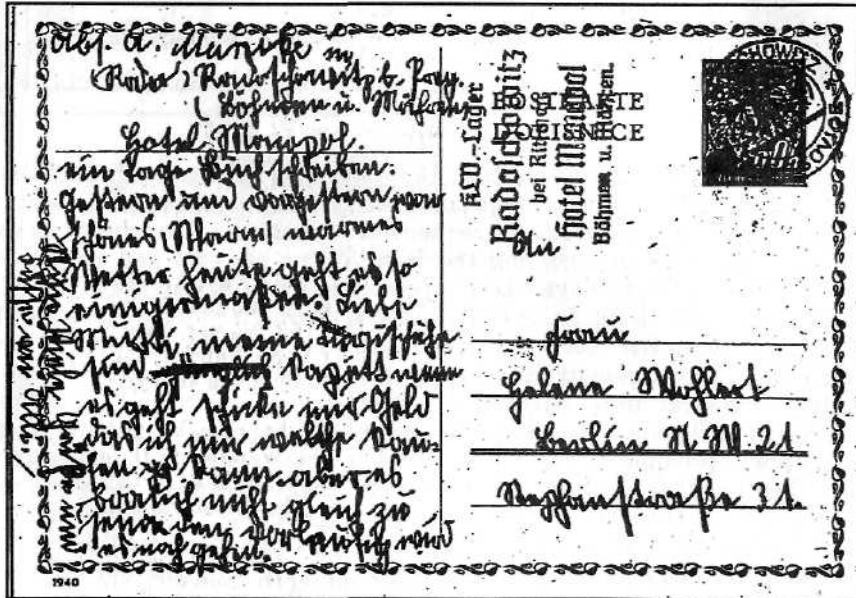 Abs. A.
Radoschowitz b. Prag.
(Böhmen u. Mähren
Hotel Monopol.
ein Tage Buch schreiben.
Gestern und vorgestern war
schönes warmes
Wetter heute geht es so
einigermaßen. Liebe
Mutti, meine Turnschuhe
sind kaputt wenn
es geht schicke mir Geld
das ich mir welche kau-
fen kann. aber es
braucht nicht gleich zu
wird
es noch gehen.
1940
KLV-Lager
Radoschowitz
bei
Hotel Monopol
Böhmen u. Mähren.
POSTKARTE
DOPISNICE
An
Frau
Helene Wohlert
Berlin N.W. 21
Stephanstraße 31.